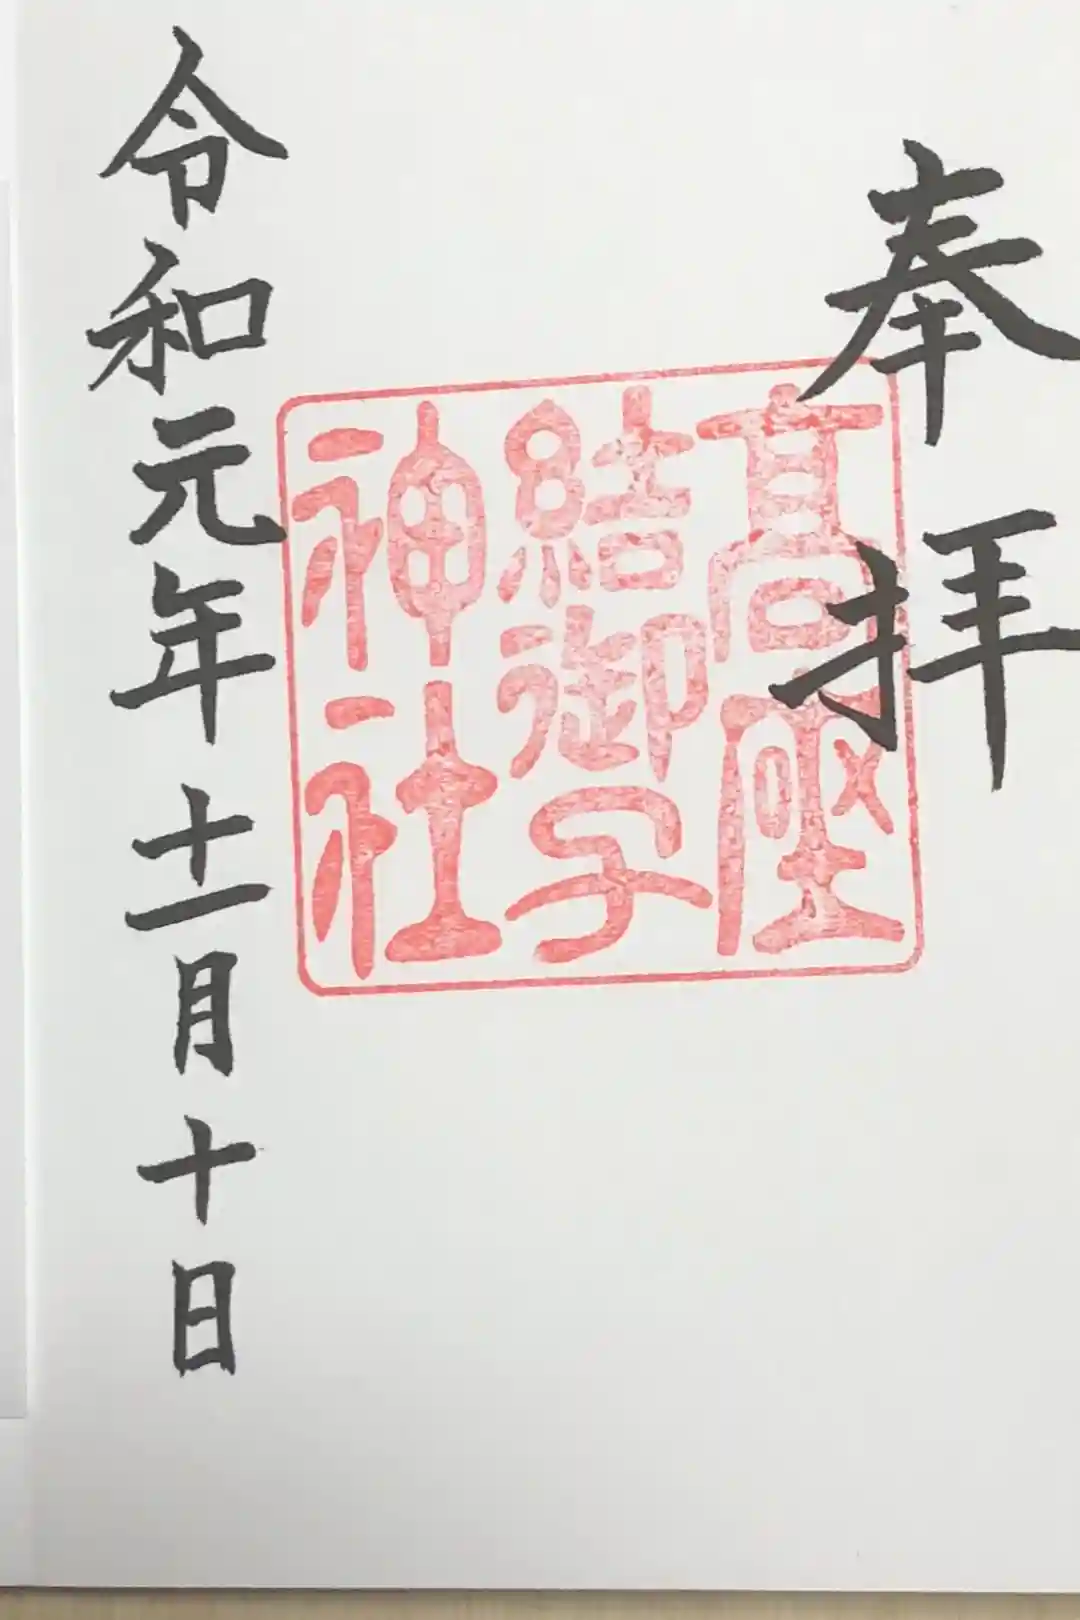 奉拝
髙座
結御子
神社
令和元年十一月十日